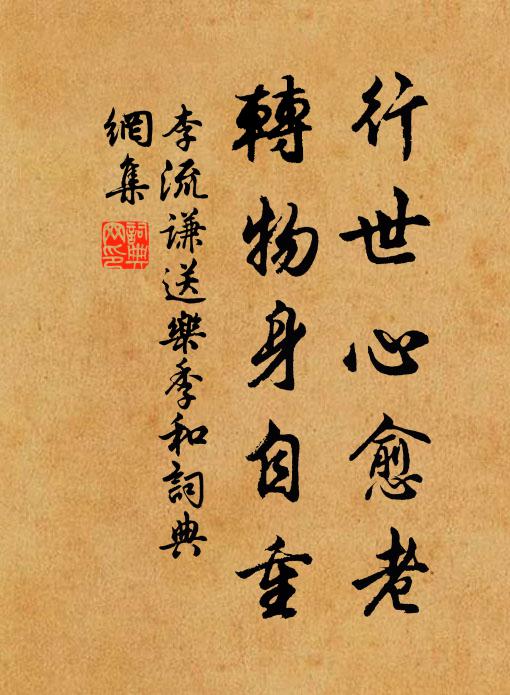 行世心愈老
轉物身自重
李流謙送樂季和詞典
網集
詞典
网印